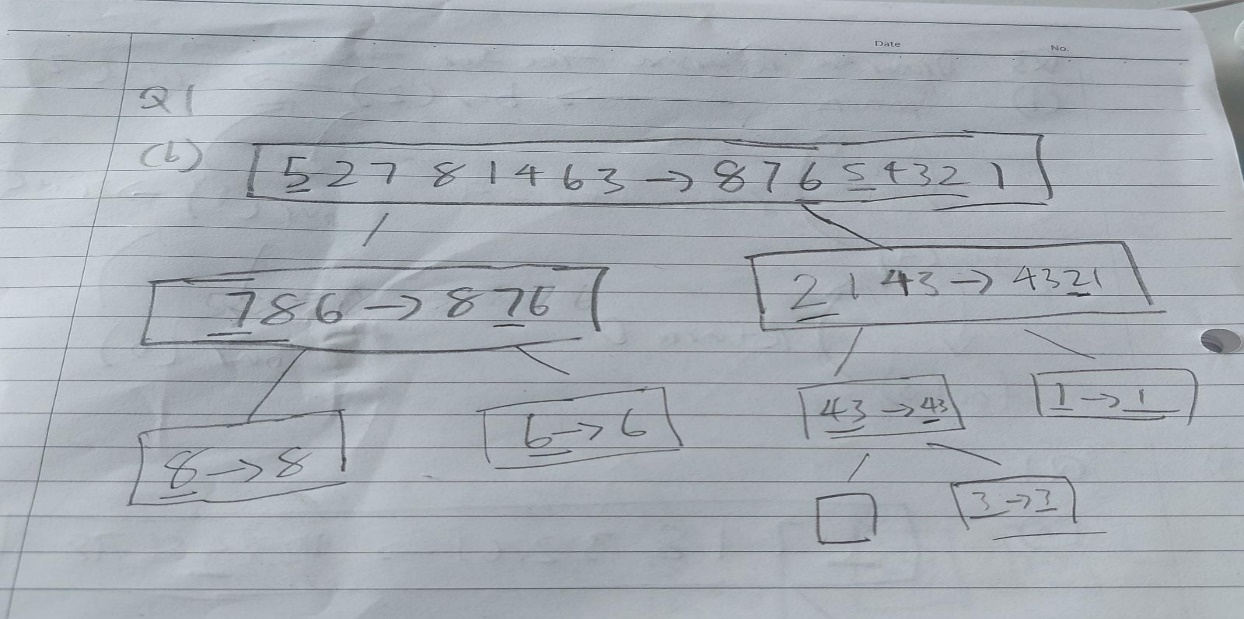 Date No.
Q1
(b) 5 2 7 8 1 4 6 3 → 8 7 6 5 4 3 2 1
7 8 6 → 8 7 6
2 1 4 3 → 4 3 2 1
8 → 8
6 → 6
4 3 → 4 3
1 → 1
3 → 3